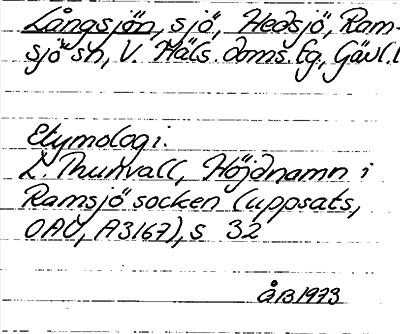 Långsjön, sjö, Hedsjö, Ram-
sjö sn, V. Häls. doms. tg., Gävl. l
Etymologi.
L. Thunvall, Höjdnamn i
Ramsjö socken (uppsats,
OAU, A3167), s 32
ÅB 1973